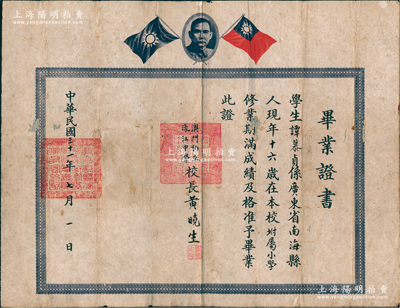 上海陽明拍賣
畢業證書
學生譚慕貞係廣東省南海縣
人現年十六歲在本校附屬小學
修業期滿成績及格准予畢業
此證
澳門
珠江中學
校長黃曉生
中華民國三十一年七月一日
上海陽明拍賣